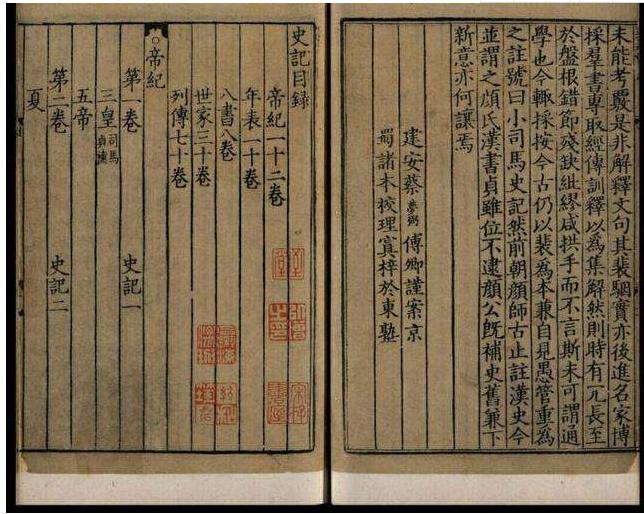 未能考覈是非解釋文句其裴駰實亦後進名家博
採羣書專取經傳訓釋以為集解然則時有冗長至
於盤根錯節殘缺紕繆咸拱手而不言斯未可謂通
學也今輒採按今古仍以裴為本兼自見愚管重為
之註號曰小司馬史記然前朝顔師古止註漢史今
並謂之顔氏漢書貞雖位不逮顔公旣補史舊兼下
新意亦何讓焉
建安蔡夢弼傅卿謹案京
蜀諸本校理寘梓於東塾
史記目録
帝紀一十二卷
年表一十卷
八書八卷
世家三十卷
列傳七十卷
帝紀
第一卷 史記一
三皇司馬貞補
五帝
第二卷 史記二
夏